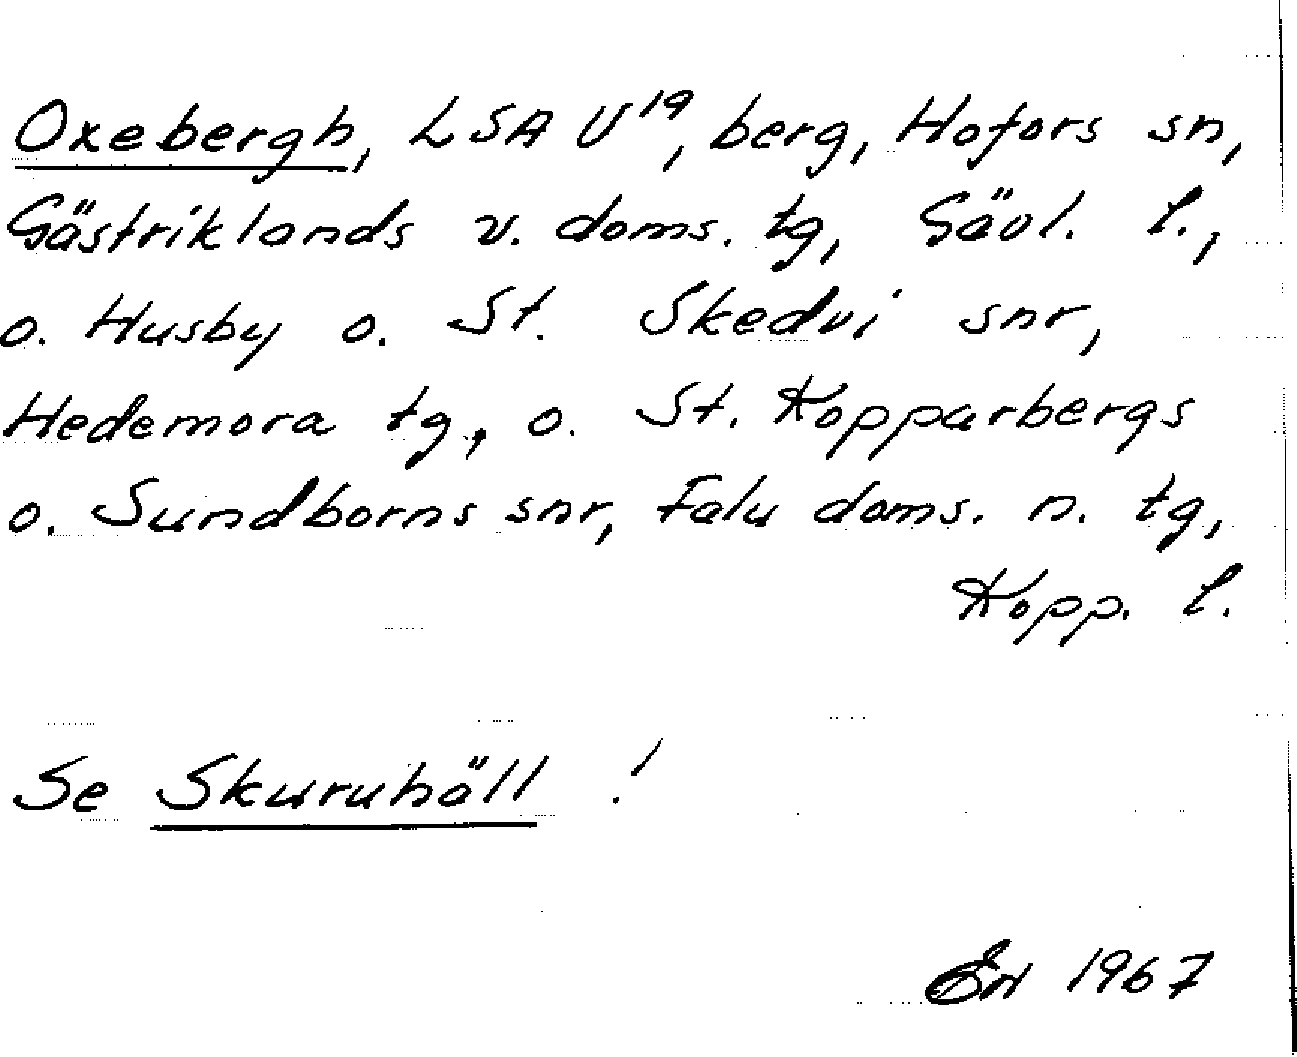 Oxebergh, LSA U19, berg, Hofors sn,
Gästriklands v. doms. tg, Gävl. l.,
o. Husby o. St. Skedvi snr,
Hedemora tg, o. St. Kopparbergs
o. Sundborns snr, Falu doms. n. tg,
Kopp. l.
Se Skuruhäll !
En 1967